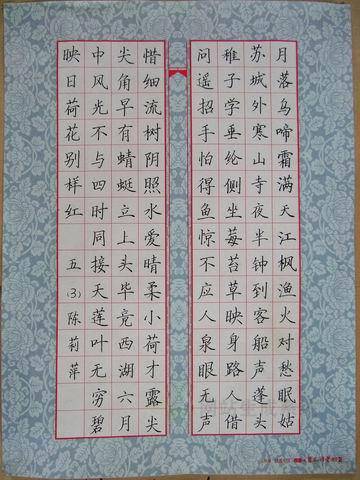 月落乌啼霜满天江枫渔火对愁眠姑
苏城外寒山寺夜半钟到客船声蓬头
稚子学垂纶侧坐莓苔草映身路人借
问遥招手怕得鱼惊不应人泉眼无声
惜细流树阴照水爱晴柔小荷才露尖
尖角早有蜻蜓立上头毕竟西湖六月
中风光不与四时同接天莲叶无穷碧
映日荷花别样红 五(3)陈莉萍